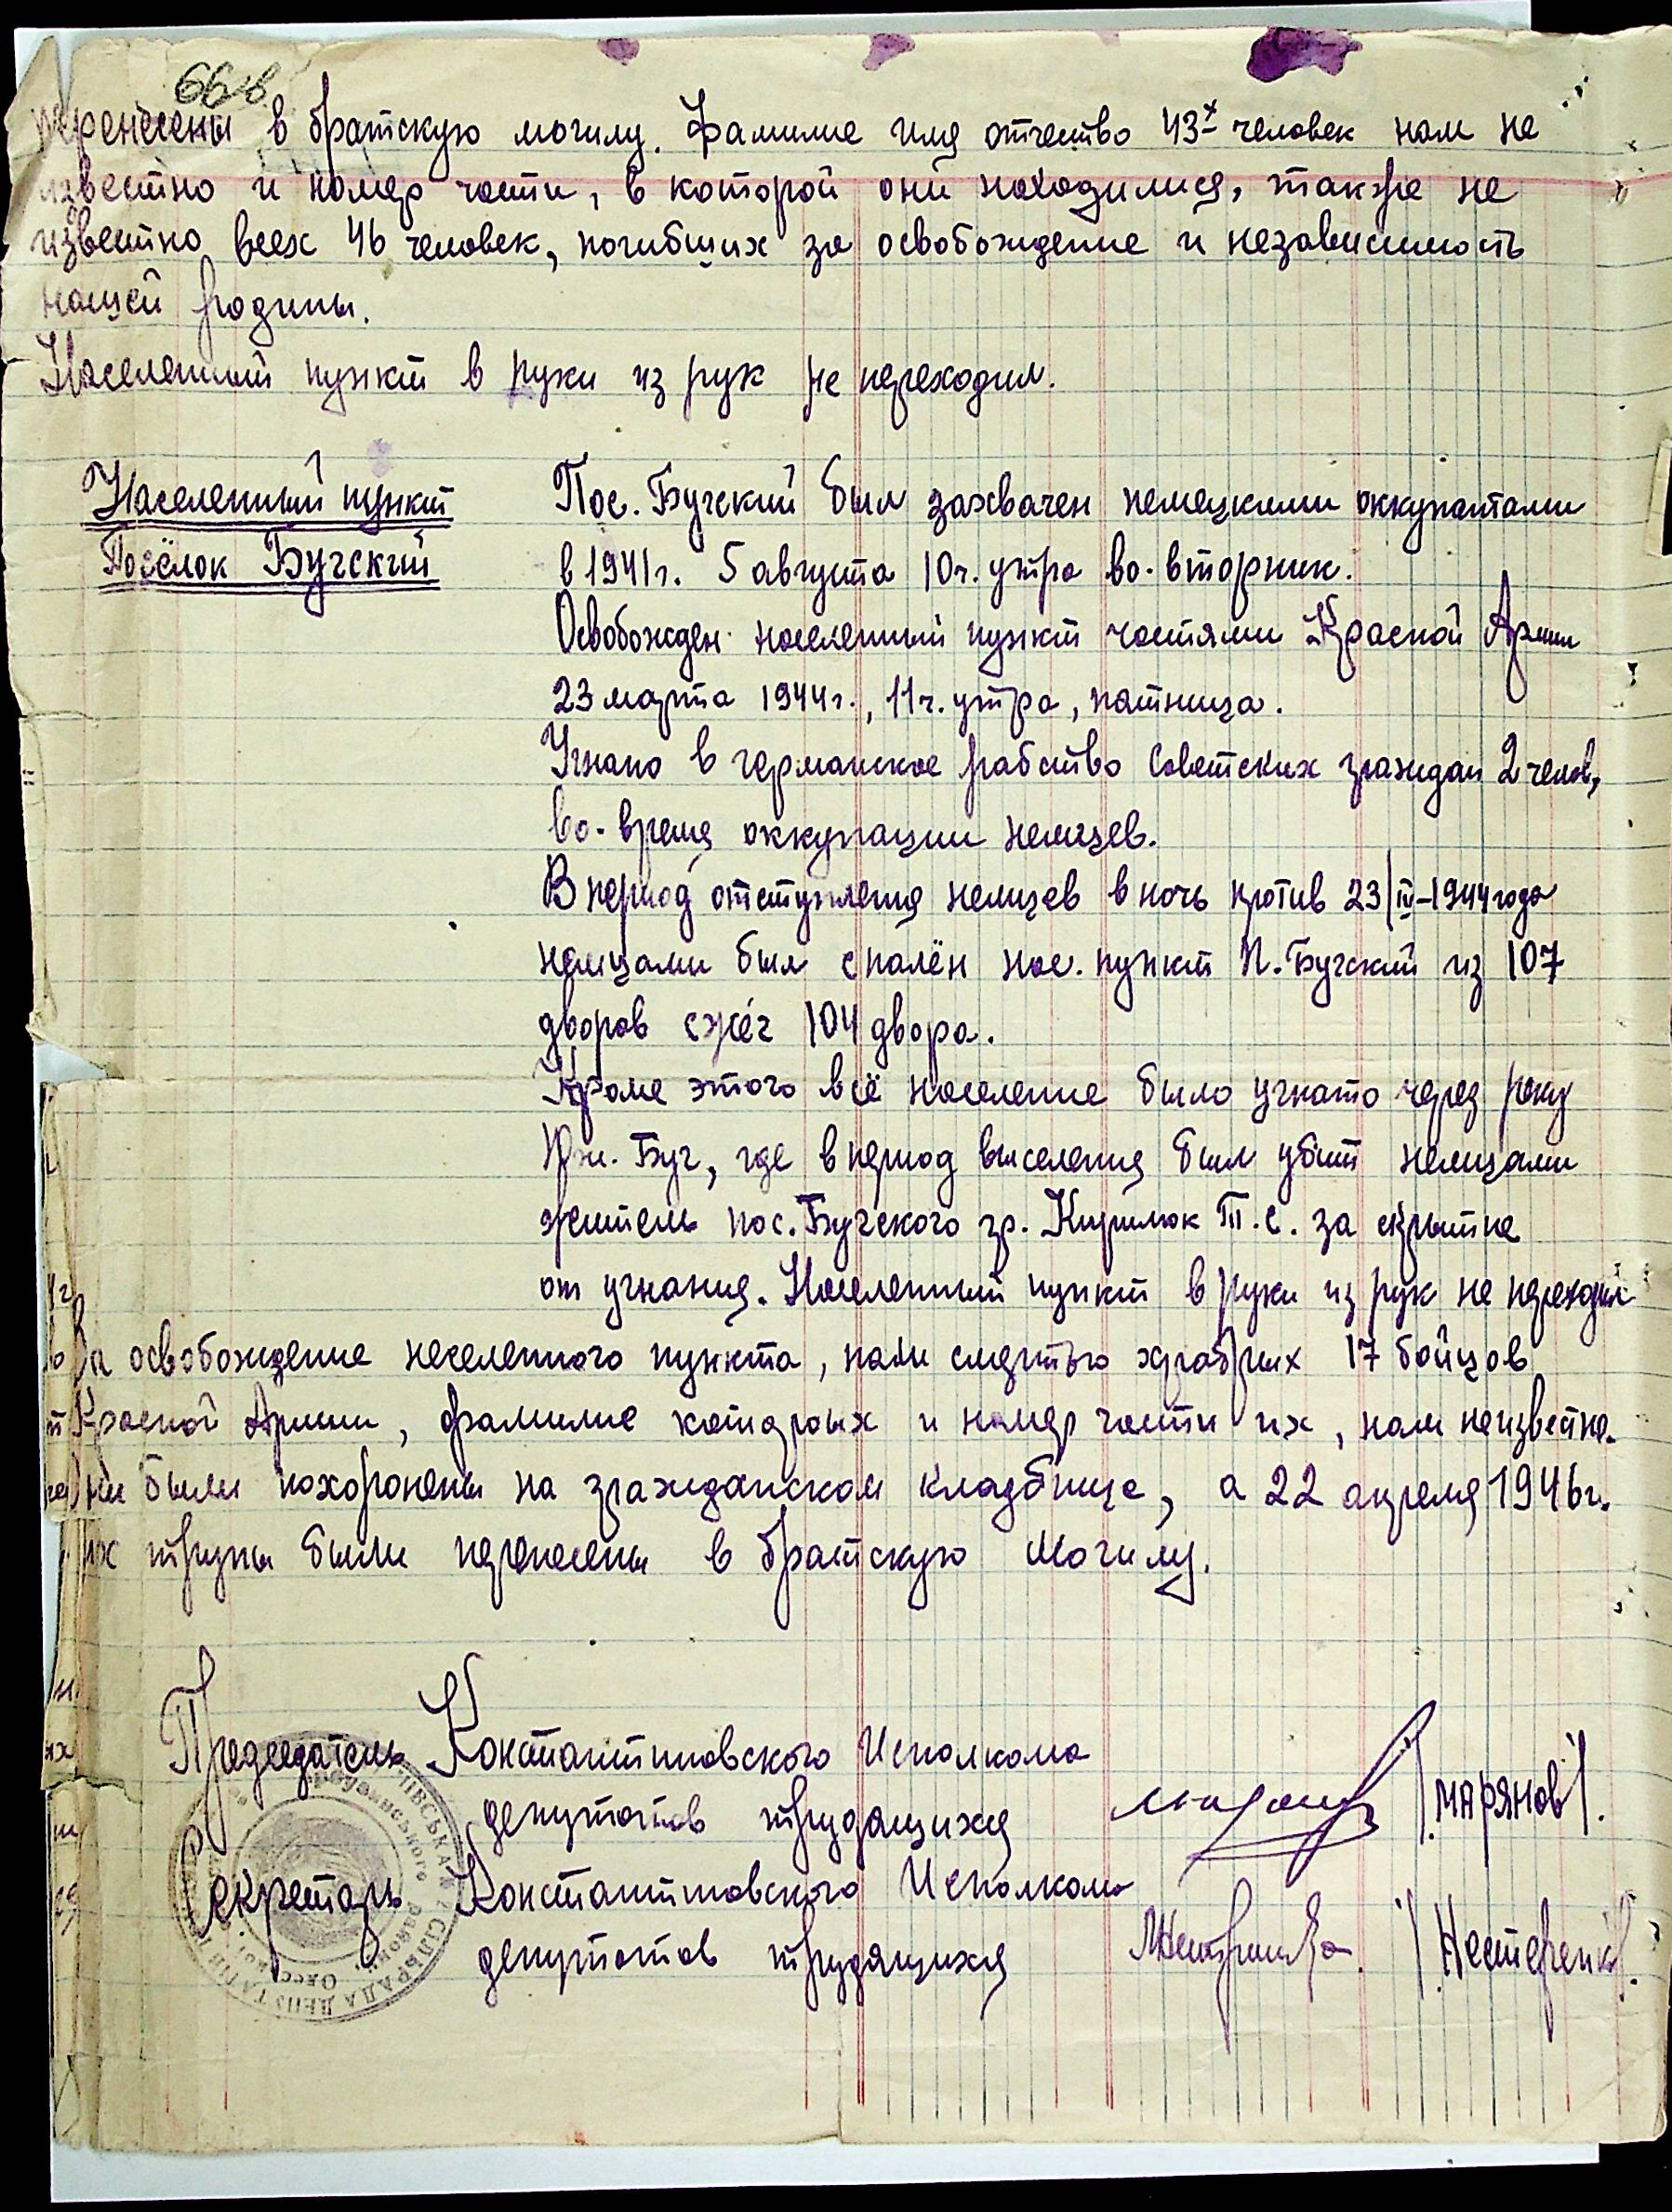 66 зв
перенесены в братскую могилу. Фамилие имя отчество 43х человек нам не
известно и номер части, в которой они находились, также не
известно всех 46 человек, погибших за освобождение и независимость
нашей родины.
Населенный пункт в руки из рук не переходил.
Населенный пункт
Посёлок Бугский
Пос. Бугский был захвачен немецкими оккупантами
в 1941г. 5 августа 10ч. утра во-вторник.
Освобожден населенный пункт частями Красной Армии
23 марта 1944г., 11ч. утра, патница.
Угнано в германское рабство Советских граждан 2 челов,
во-время оккупации немцев.
В период отступления немцев в ночь против 23/III-1944 года
немцами был спалён нас. пункт П. Бугский из 107
дворов сжёг 104 двора.
Кроме этого всё население было угнато через реку
Юж. Буг, где в период выселения был убит немцами
житель пос. Бугского гр. Кирилюк Т.С. за скрытие
от угнания. Населенный пункт в руки из рук не переходил
За освобождение населенного пункта, пали смертью храбрых 17 бойцов
Красной Армии, фамилие которых и номер части их, нам неизвестно.
Они были похоронены на гражданском кладбище, а 22 апреля 1946г.
их трупы были перенесены в братскую могилу.
Председатель Константиновского Исполкома
депутатов трудящихся /МАРЯНОВ/.
Секретарь Константиновского Исполкома
депутатов трудящихся /Нестеренко/.